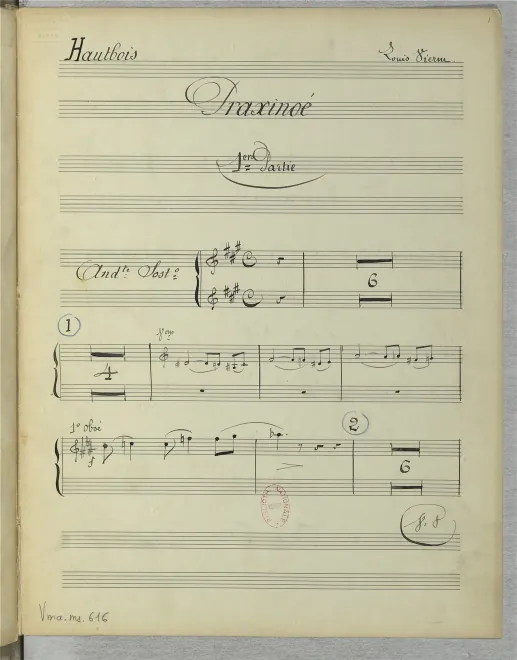 1
Hautbois
Louis Vierne
Praxinoé
1ère Partie
Andte Sosto
6
1
4
1o oboé
f
2
6
Vma. ms. 616